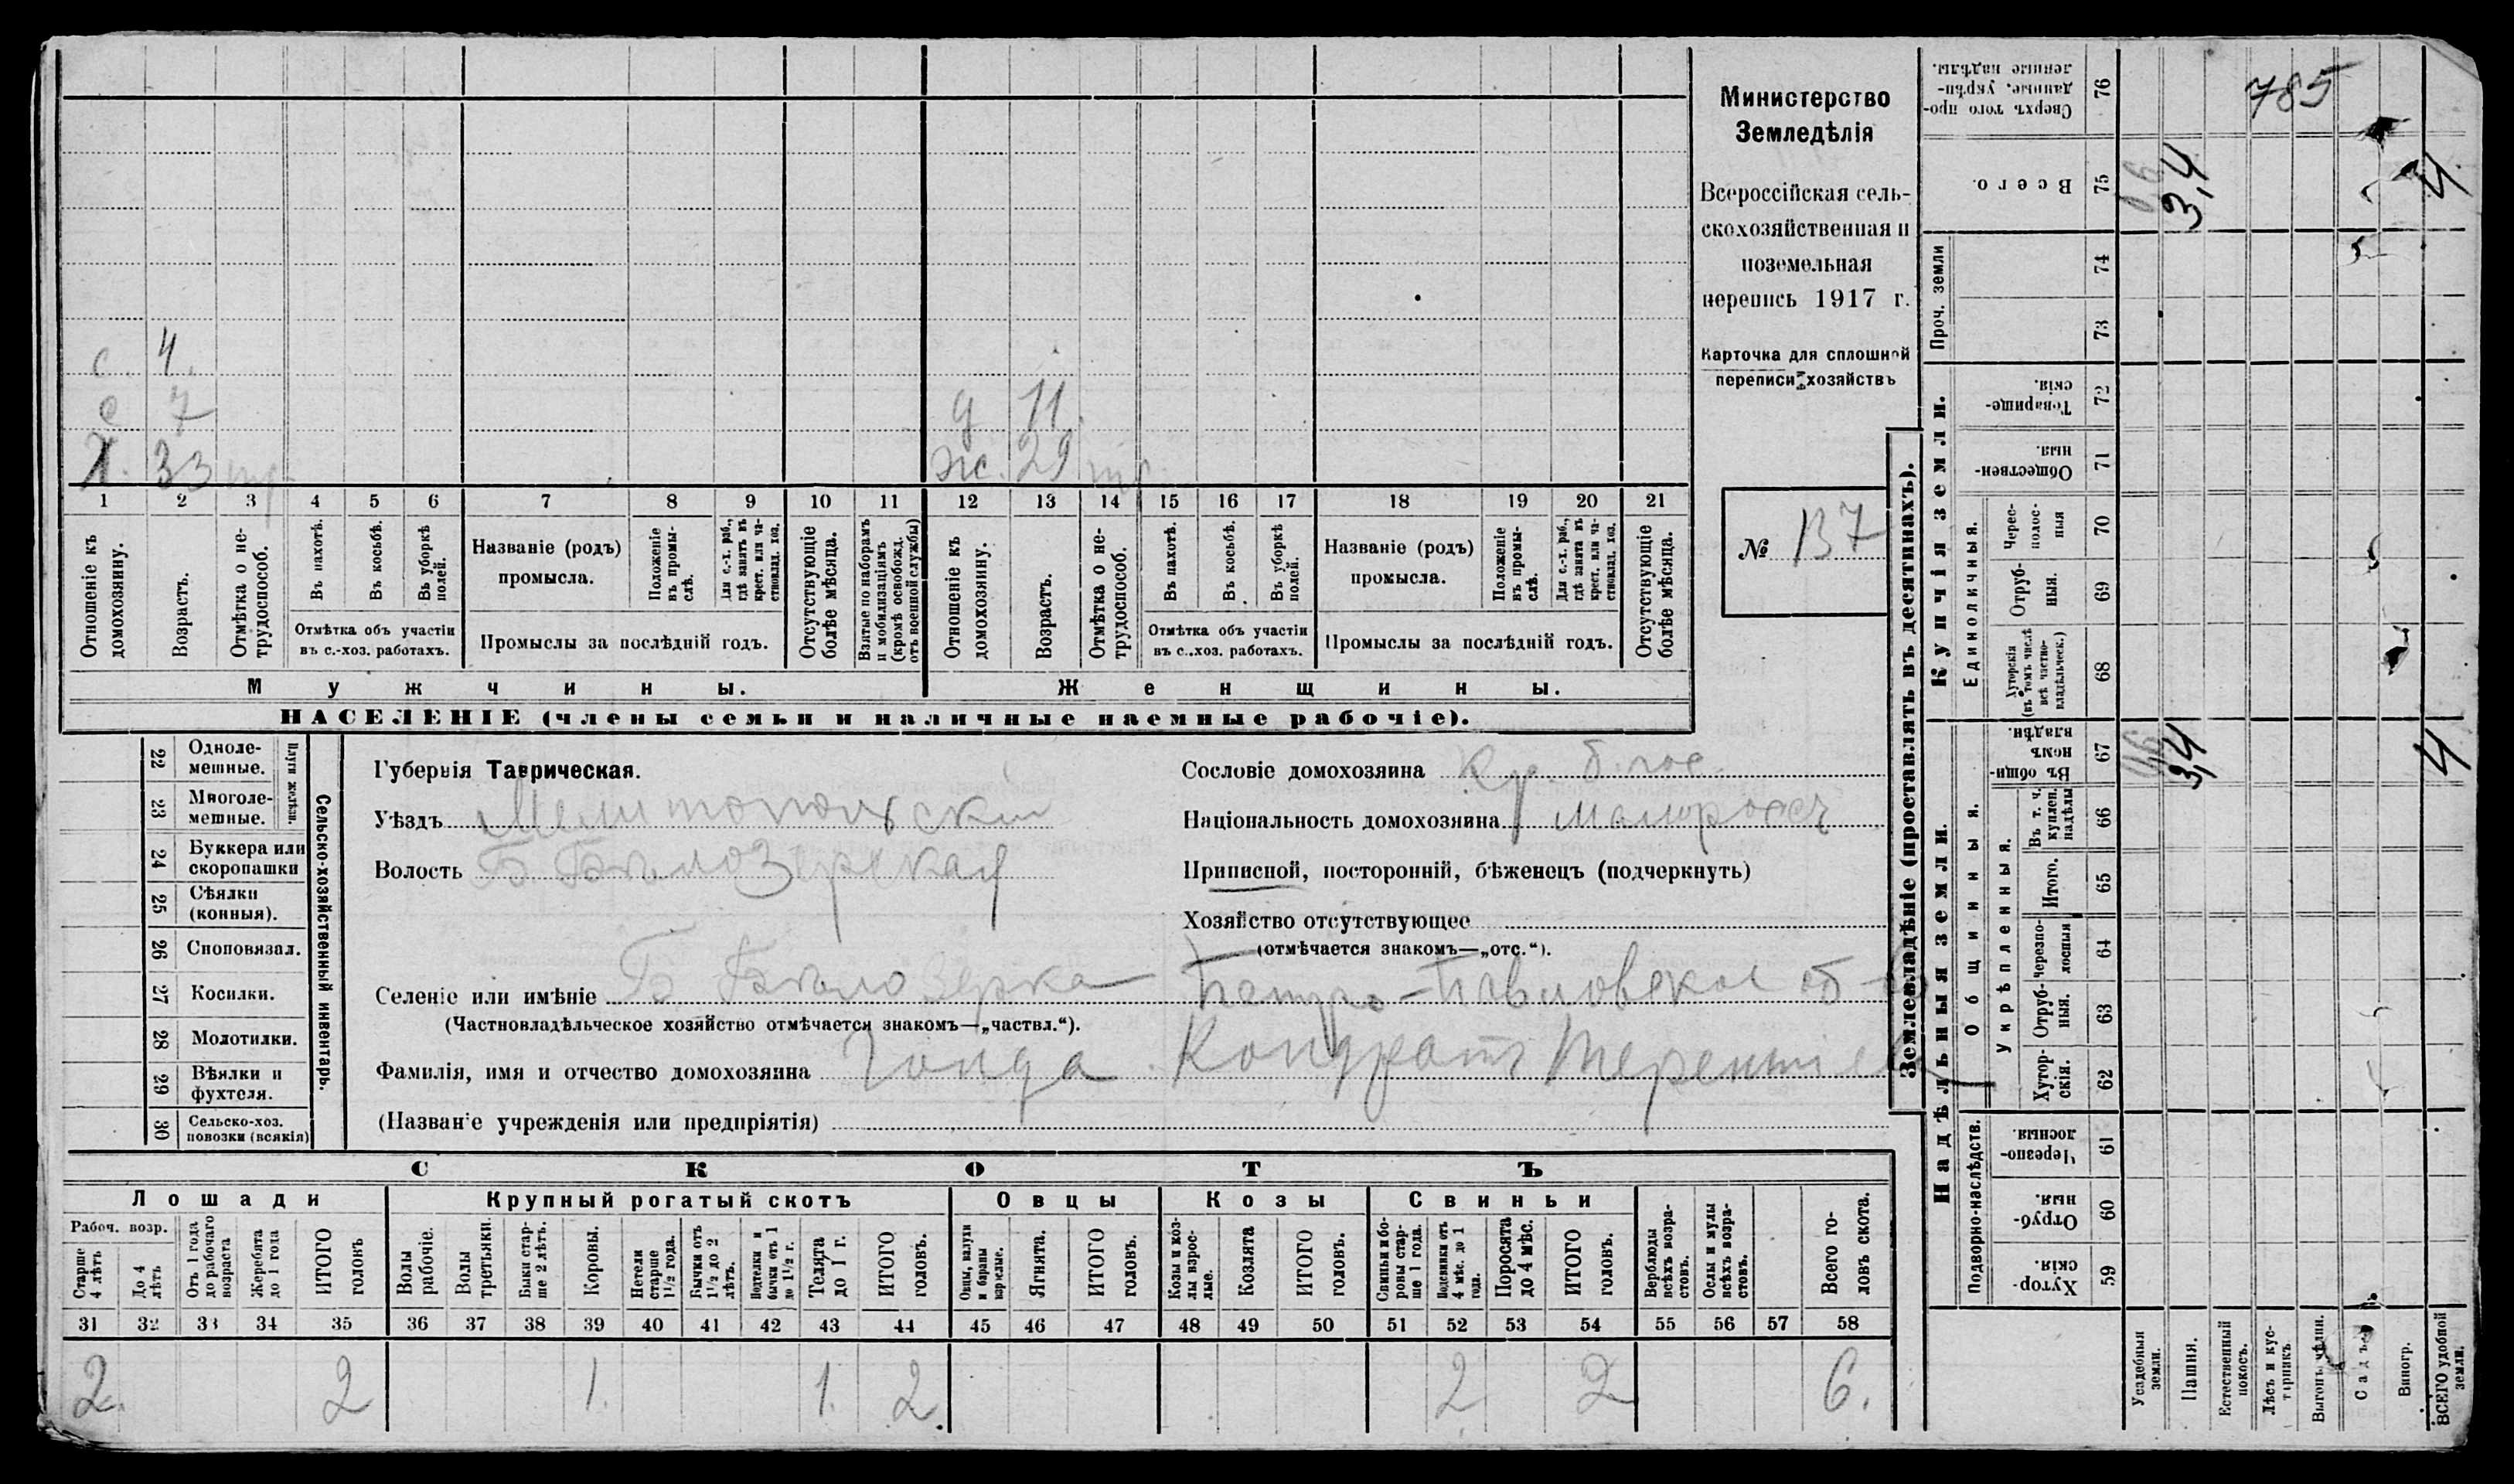 785
с. 4.
с 7
Х. 33 тр.
д 11.
ж. 29 тр
1 2 3 4 5 6 7 8 9 10 11 12 13 14 15 16 17 18 19 20 21
Отношеніе къ домохозяину.
Возрастъ.
Отмѣтка о не-трудоспособ.
Въ пахотѣ.
Въ косьбѣ.
Въ уборкѣ полей.
Отмѣтка объ участіи
въ с.-хоз. работахъ.
Названіе (родъ)
промысла.
Положеніе въ промы-слѣ.
Для с.-х. раб., гдѣ занятъ въ крест. или ча-стновлад. хоз.
Промыслы за послѣдній годъ.
Отсутствующіе болѣе мѣсяца.
Взятые по наборамъ и мобилизаціямъ (кромѣ освобожд. отъ военной службы)
Отношеніе къ домохозяину.
Возрастъ.
Отмѣтка о не-трудоспособ.
Въ пахотѣ.
Въ косьбѣ.
Въ уборкѣ полей.
Отмѣтка объ участіи
въ с.-хоз. работахъ.
Названіе (родъ)
промысла.
Положеніе въ промы-слѣ.
Для с.-х. раб., гдѣ занята въ крест. или ча-стновлад. хоз.
Промыслы за послѣдній годъ.
Отсутствующіе болѣе мѣсяца.
Мужчины.
Женщины.
НАСЕЛЕНІЕ (члены семьи и наличные наемные рабочіе).
Министерство
Земледѣлія
Всероссійская сель-
скохозяйственная и
поземельная
перепись 1917 г.
Карточка для сплошной
переписи хозяйствъ
№ 137
22 Одноле-мешные.
23 Многоле-мешные.
Плуги желѣзн.
24 Буккера или скоропашки
25 Сѣялки (конныя).
26 Сноповязал.
27 Косилки.
28 Молотилки.
29 Вѣялки и фухтеля.
30 Сельско-хоз. повозки (всякія)
Сельско-хозяйственный инвентарь.
Губернія Таврическая.
Уѣздъ Мелитопольскій
Волость Б Бѣлозерская
Селеніе или имѣніе Б Бѣлозерка Петро-Павловское об-во
(Частновладѣльческое хозяйство отмѣчается знакомъ—„частвл.“).
Фамилія, имя и отчество домохозяина Гонда Кондратъ Терентіев
(Названіе учрежденія или предпріятія)
Сословіе домохозяина Кр. б. гос.
Національность домохозяина малороссъ
Приписной, посторонній, бѣженецъ (подчеркнуть)
Хозяйство отсутствующее
(отмѣчается знакомъ—„отс.“).
СКОТЪ
Лошади
Крупный рогатый скотъ
Овцы
Козы
Свиньи
Рабоч. возр.
Старше 4 лѣтъ
До 4 лѣтъ
Отъ 1 года до рабочаго возраста
Жеребята до 1 года
ИТОГО головъ
Волы рабочіе.
Волы третьяки.
Быки стар-ше 2 лѣтъ.
Коровы.
Нетели старше 1½ года.
Бычки отъ 1½ до 2 лѣтъ.
Подтелки и бычки отъ 1 до 1½ г.
Телята до 1 г.
ИТОГО головъ.
Овцы, валухи и бараны взрослые.
Ягнята.
ИТОГО головъ.
Козы и коз-лы взрос-лые.
Козлята
ИТОГО головъ.
Свиньи и бо-ровы стар-ше 1 года.
Подсвинки отъ 4 мѣс. до 1 года.
Поросята до 4 мѣс.
ИТОГО головъ.
Верблюды всѣхъ возра-стовъ.
Ослы и мулы всѣхъ возра-стовъ.
Всего го-ловъ скота.
31 32 33 34 35 36 37 38 39 40 41 42 43 44 45 46 47 48 49 50 51 52 53 54 55 56 57 58
2. 2 1. 1. 2. 2 2 6.
Землевладѣніе (проставлять въ десятинахъ).
Купчія земли.
Надѣльныя земли.
Сверхъ того про-данные, укрѣп-ленные надѣлы. 76
Всего. 75 0,6 3,4 4
Проч. земли 74 73
Товарище-скія. 72
Обществен-ныя. 71
Единоличныя.
Черес-полос-ныя 70
Отруб-ныя. 69
Хуторскія (въ томъ числѣ всѣ частно-владѣльческ.) 68
Общинныя.
Въ общи-номъ владѣн. 67 0,6 3,4 4
Укрѣпленныя.
Въ т. ч. куплен. надѣлы 66
Итого. 65
Черезпо-лосныя 64
Отруб-ныя. 63
Хутор-скія. 62
Подворно-наслѣдств.
Черезпо-лосныя. 61
Отруб-ныя. 60
Хутор-скія. 59
Усадебныя земли.
Пашня.
Естественный покосъ.
Лѣсъ и кус-тарникъ
Садъ
Виногр.
ВСЕГО удобной земли.